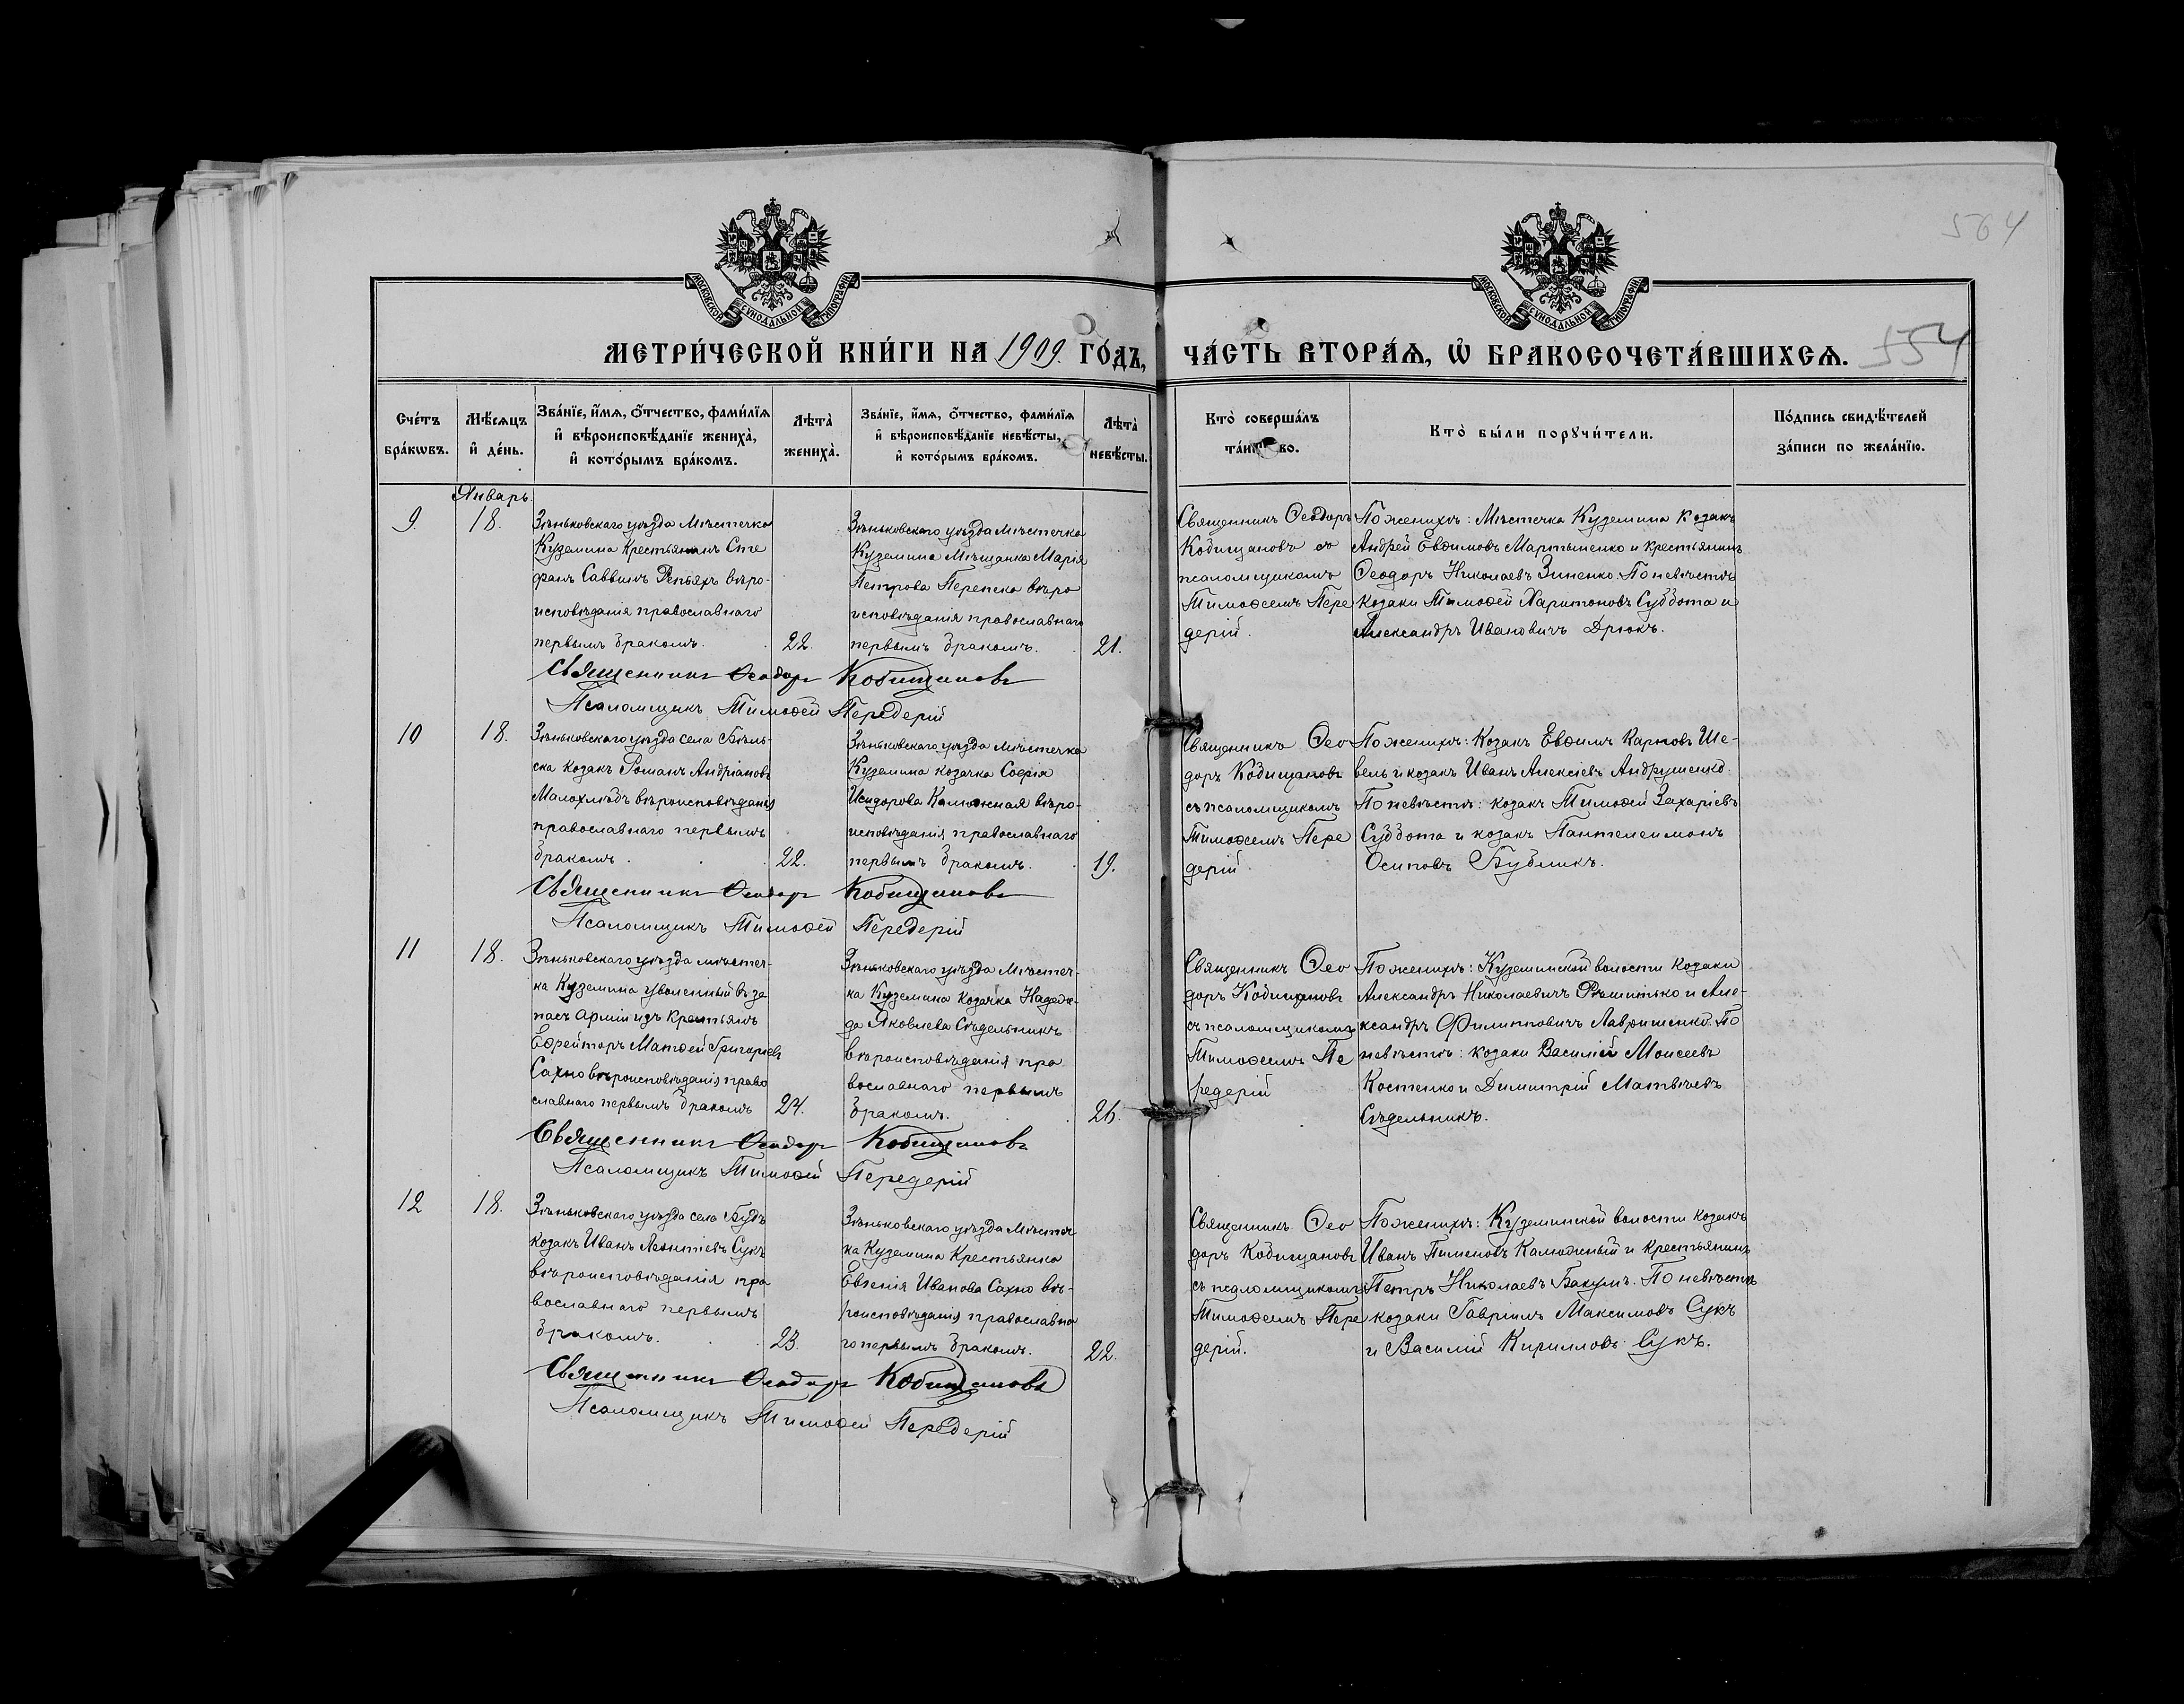 564
МОСКОВСКОЙ СѴНОДАЛЬНОЙ ТИПОГРАФІИ
МОСКОВСКОЙ СѴНОДАЛЬНОЙ ТИПОГРАФІИ
МЕТРИ́ЧЕСКОЙ КНИ́ГИ НА 1909. ГО́ДЪ,
ЧА́СТЬ ВТОРА́Ѧ, Ѡ҆ БРАКОСОЧЕТА́ВШИХСѦ.
554
Сче́тъ
бра́кѡвъ.
Мѣ́сѧцъ
и҆ де́нь.
Зва́нїе, и҆́мѧ, ѻ҆́тчество, фами́лїѧ
и҆ вѣроисповѣ́данїе жениха̀,
и҆ кото́рымъ бра́комъ.
Лѣта̀
жениха̀.
Зва́нїе, и҆́мѧ, ѻ҆́тчество, фами́лїѧ
и҆ вѣроисповѣ́данїе невѣ́сты,
и҆ кото́рымъ бра́комъ.
Лѣта̀
невѣ́сты.
Кто̀ соверша́лъ
та́инство.
Кто̀ бы́ли порꙋчи́тели.
По́дпись свидѣ́телей
за́писи по жела́нїю.
Январь.
9.
18.
Зѣньковскаго уѣзда мѣстечка
Куземина крестьянинъ Сте
фанъ Саввинъ Репьяхъ вѣро-
исповѣданія православнаго
первымъ бракомъ.
22.
Зѣньковскаго уѣзда мѣстечка
Куземина Мѣщанка Марія
Петрова Перепека вѣро
исповѣданія православнаго
первымъ бракомъ.
21.
Священникъ Ѳеодоръ
Кобищановъ съ
псаломщикомъ
Тимоѳеемъ Пере
дерій.
По женихѣ: Мѣстечка Куземина козакъ
Андрей Евѳимовъ Мартыненко и крестьянинъ
Ѳеодоръ Николаевъ Зиненко. По невѣстѣ:
козаки Тимоѳей Харитоновъ Суббота и
Александръ Ивановичъ Дрюкъ.
Священникъ Ѳеодоръ Кобищановъ
Псаломщикъ Тимоѳей Передерій
10
18.
Зѣньковскаго уѣзда села Бѣль-
ска козакъ Романъ Андріановъ
Малохлѣбъ вѣроисповѣданія
православнаго первымъ
бракомъ.
22.
Зѣньковскаго уѣзда мѣстечка
Куземина козачка Софія
Исидорова Калюжная вѣро-
исповѣданія православнаго
первымъ бракомъ.
19.
Священникъ Ѳео
доръ Кобищановъ
съ псаломщикомъ
Тимоѳеемъ Пере
дерій
По женихѣ: Козакъ Евѳимъ Карповъ Ше-
вель и козакъ Иванъ Алексіевъ Андрушенко.
По невѣстѣ: козакъ Тимоѳей Захаріевъ
Суббота и козакъ Пантелеимонъ
Осиповъ Бубликъ.
Священникъ Ѳеодоръ Кобищановъ
Псаломщикъ Тимоѳей Передерій
11
18.
Зѣньковскаго уѣзда мѣстеч-
ка Куземина уволенный въ за
пасъ арміи изъ крестьянъ
Ефрейторъ Матѳей Григоріевъ
Сахно вѣроисповѣданія право
славнаго первымъ бракомъ
27.
Зѣньковскаго уѣзда Мѣстеч-
ка Куземина козачка Надеж-
да Яковлева Сѣдельникъ
вѣроисповѣданія пра
вославнаго первымъ
бракомъ.
26.
Священникъ Ѳео
доръ Кобищановъ
съ псаломщикомъ
Тимоѳеемъ Пе
редерій
По женихѣ: Куземинской волости козаки
Александръ Николаевичъ Рѣшитько и Але-
ксандръ Филипповичъ Лавришенко. По
невѣстѣ: козаки Василій Моисеевъ
Костенко и Димитрій Матвѣевъ
Сѣдельникъ.
Священникъ Ѳеодоръ Кобищановъ
Псаломщикъ Тимоѳей Передерій
12
18.
Зѣньковскаго уѣзда села Будъ
козакъ Иванъ Леонтіевъ Сукъ
вѣроисповѣданія пра
вославнаго первымъ
бракомъ.
23.
Зѣньковскаго уѣзда Мѣстеч
ка Куземина крестьянка
Евгенія Иванова Сахно вѣ-
роисповѣданія православна
го первымъ бракомъ.
22.
Священникъ Ѳео
доръ Кобищановъ
съ псаломщикомъ
Тимоѳеемъ Пере
дерій.
По женихѣ: Куземинской волости козакъ
Иванъ Пименовъ Калюжный и крестьянинъ
Петръ Николаевъ Бакумъ. По невѣстѣ
козаки Гавріилъ Максимовъ Сукъ
и Василій Кирилловъ Сукъ.
Священникъ Ѳеодоръ Кобищановъ
Псаломщикъ Тимоѳей Передерій